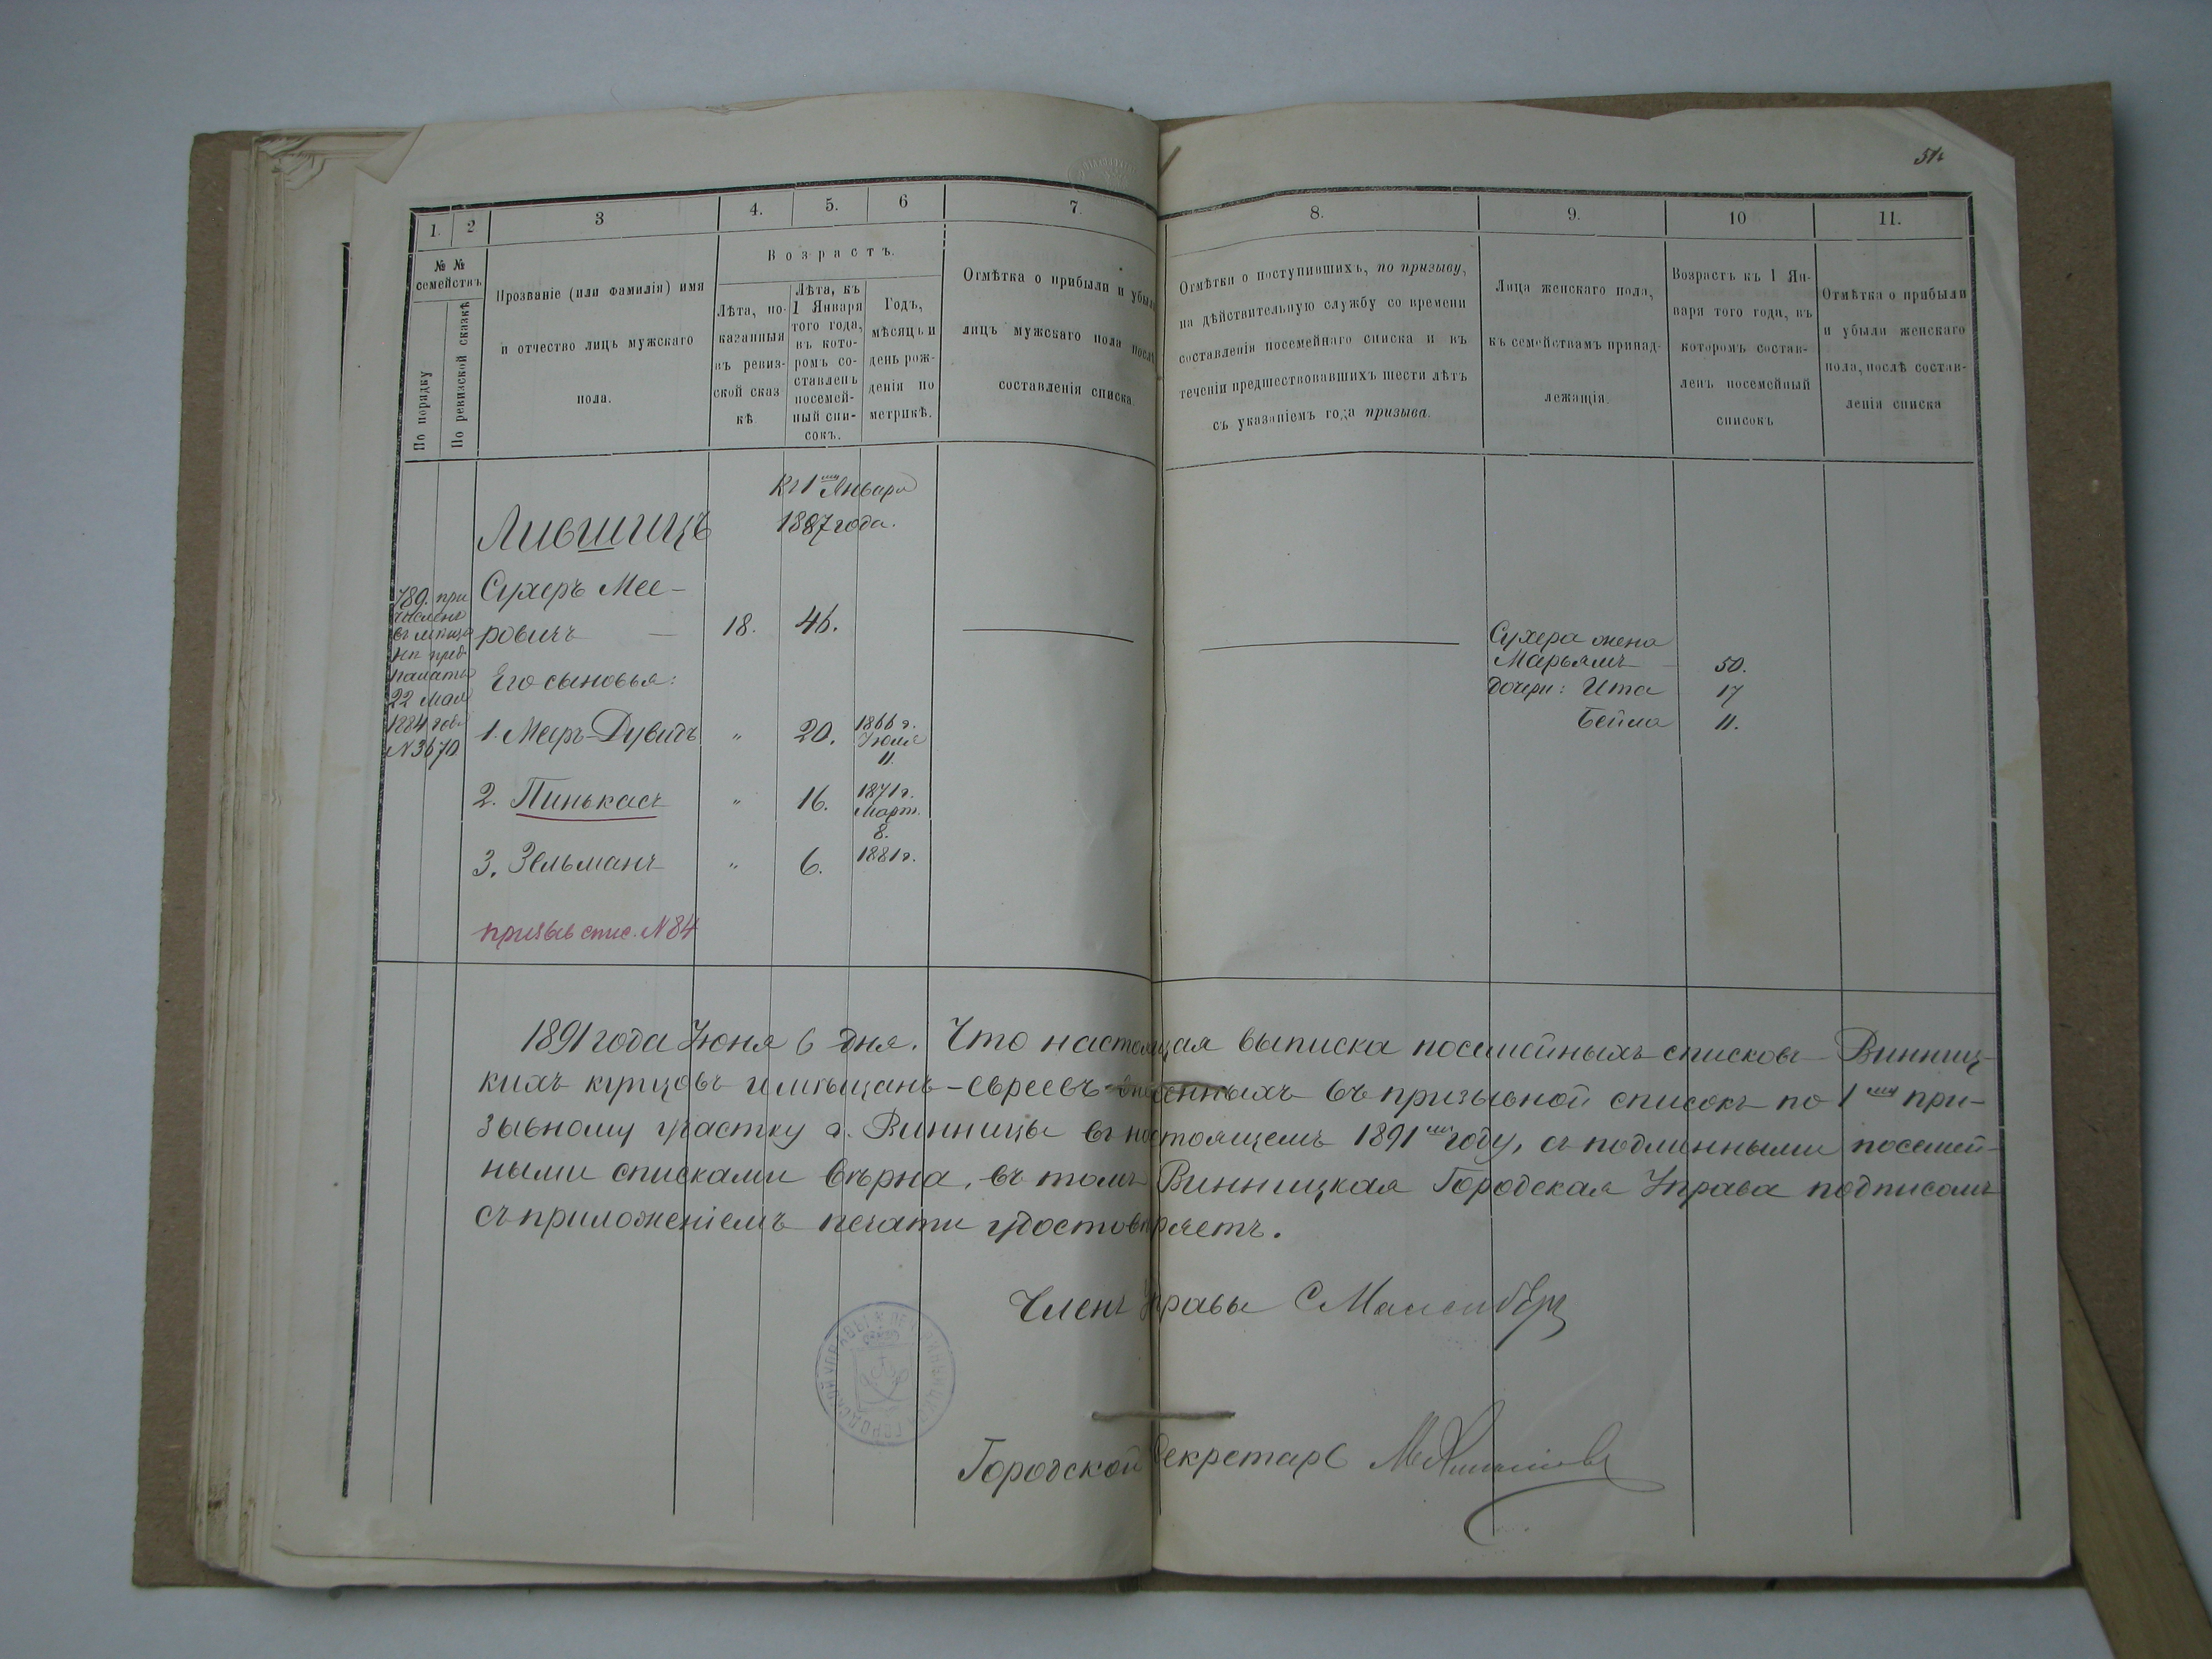 51
1. 2 3 4. 5. 6 7. 8. 9. 10 11.
№ № семействъ
По порядку
По ревизской сказкѣ
Прозваніе (или фамилія) имя
и отчество лицъ мужскаго
пола.
Возрастъ.
Лѣта, по-
казанныя
въ ревиз-
ской сказ
кѣ
Лѣта, къ
1 Января
того года,
въ кото-
ромъ со-
ставленъ
посемей-
ный спи-
сокъ.
Годъ,
мѣсяцъ и
день рож-
денія по
метрикѣ.
Отмѣтка о прибыли и убыли
лицъ мужскаго пола послѣ
составленія списка.
Отмѣтки о поступившихъ, по призыву,
на дѣйствительную службу со времени
составленія посемейнаго списка и въ
теченіи предшествовавшихъ шести лѣтъ
съ указаніемъ года призыва.
Лица женскаго пола,
къ семействамъ принад-
лежащія.
Возрастъ къ 1 Ян-
варя того года, въ
которомъ состав-
ленъ посемейный
списокъ
Отмѣтка о прибыли
и убыли женскаго
пола, послѣ состав-
ленія списка
Къ 1му Января
1887 года.
Лившицъ
789. при
численъ
въ мѣща
не пред.
палаты
22 Мая
1884 года
N 3670
Сухеръ Мее-
ровичъ — 18. 46.
Его сыновья:
1. Меръ-Дувидъ " 20. 1866 г.
Іюля
11.
2. Пинькасъ " 16. 1871 г.
Март.
8.
3. Зельманъ " 6. 1881 г.
призыв спис. N 84
Сухера жена
Марьямъ 50.
дочери: Ита 17
Бейла 11.
1891 года Іюня 6 дня. Что настоящая выписка посемейныхъ списковъ Винниц-
кихъ купцовъ и мѣщанъ-евреевъ внесенныхъ въ призывной списокъ по 1му при-
зывному участку г. Винницы въ настоящемъ 1891мъ году, съ подлинными посемей-
ными списками вѣрна, въ томъ Винницкая Городская Управа подписомъ
съ приложеніемъ печати удостовѣряетъ.
Членъ Управы С
Городской Секретарь М